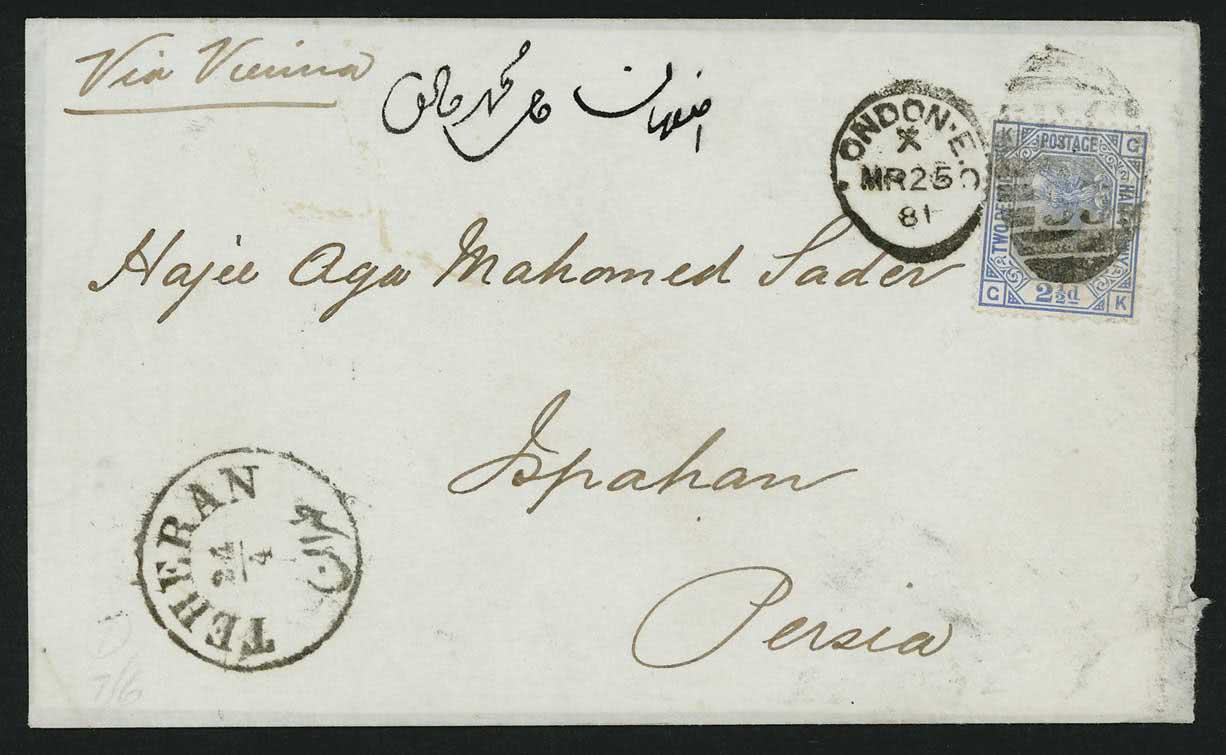 Via Vienna
اصفهان
LONDON·E.C
X
MR25
81
K POSTAGE G
TWO PENCE HALFPENNY
G 2½d K
Hajee Aga Mahomed Sader
Ispahan
Persia
TEHERAN
24
4
7/6